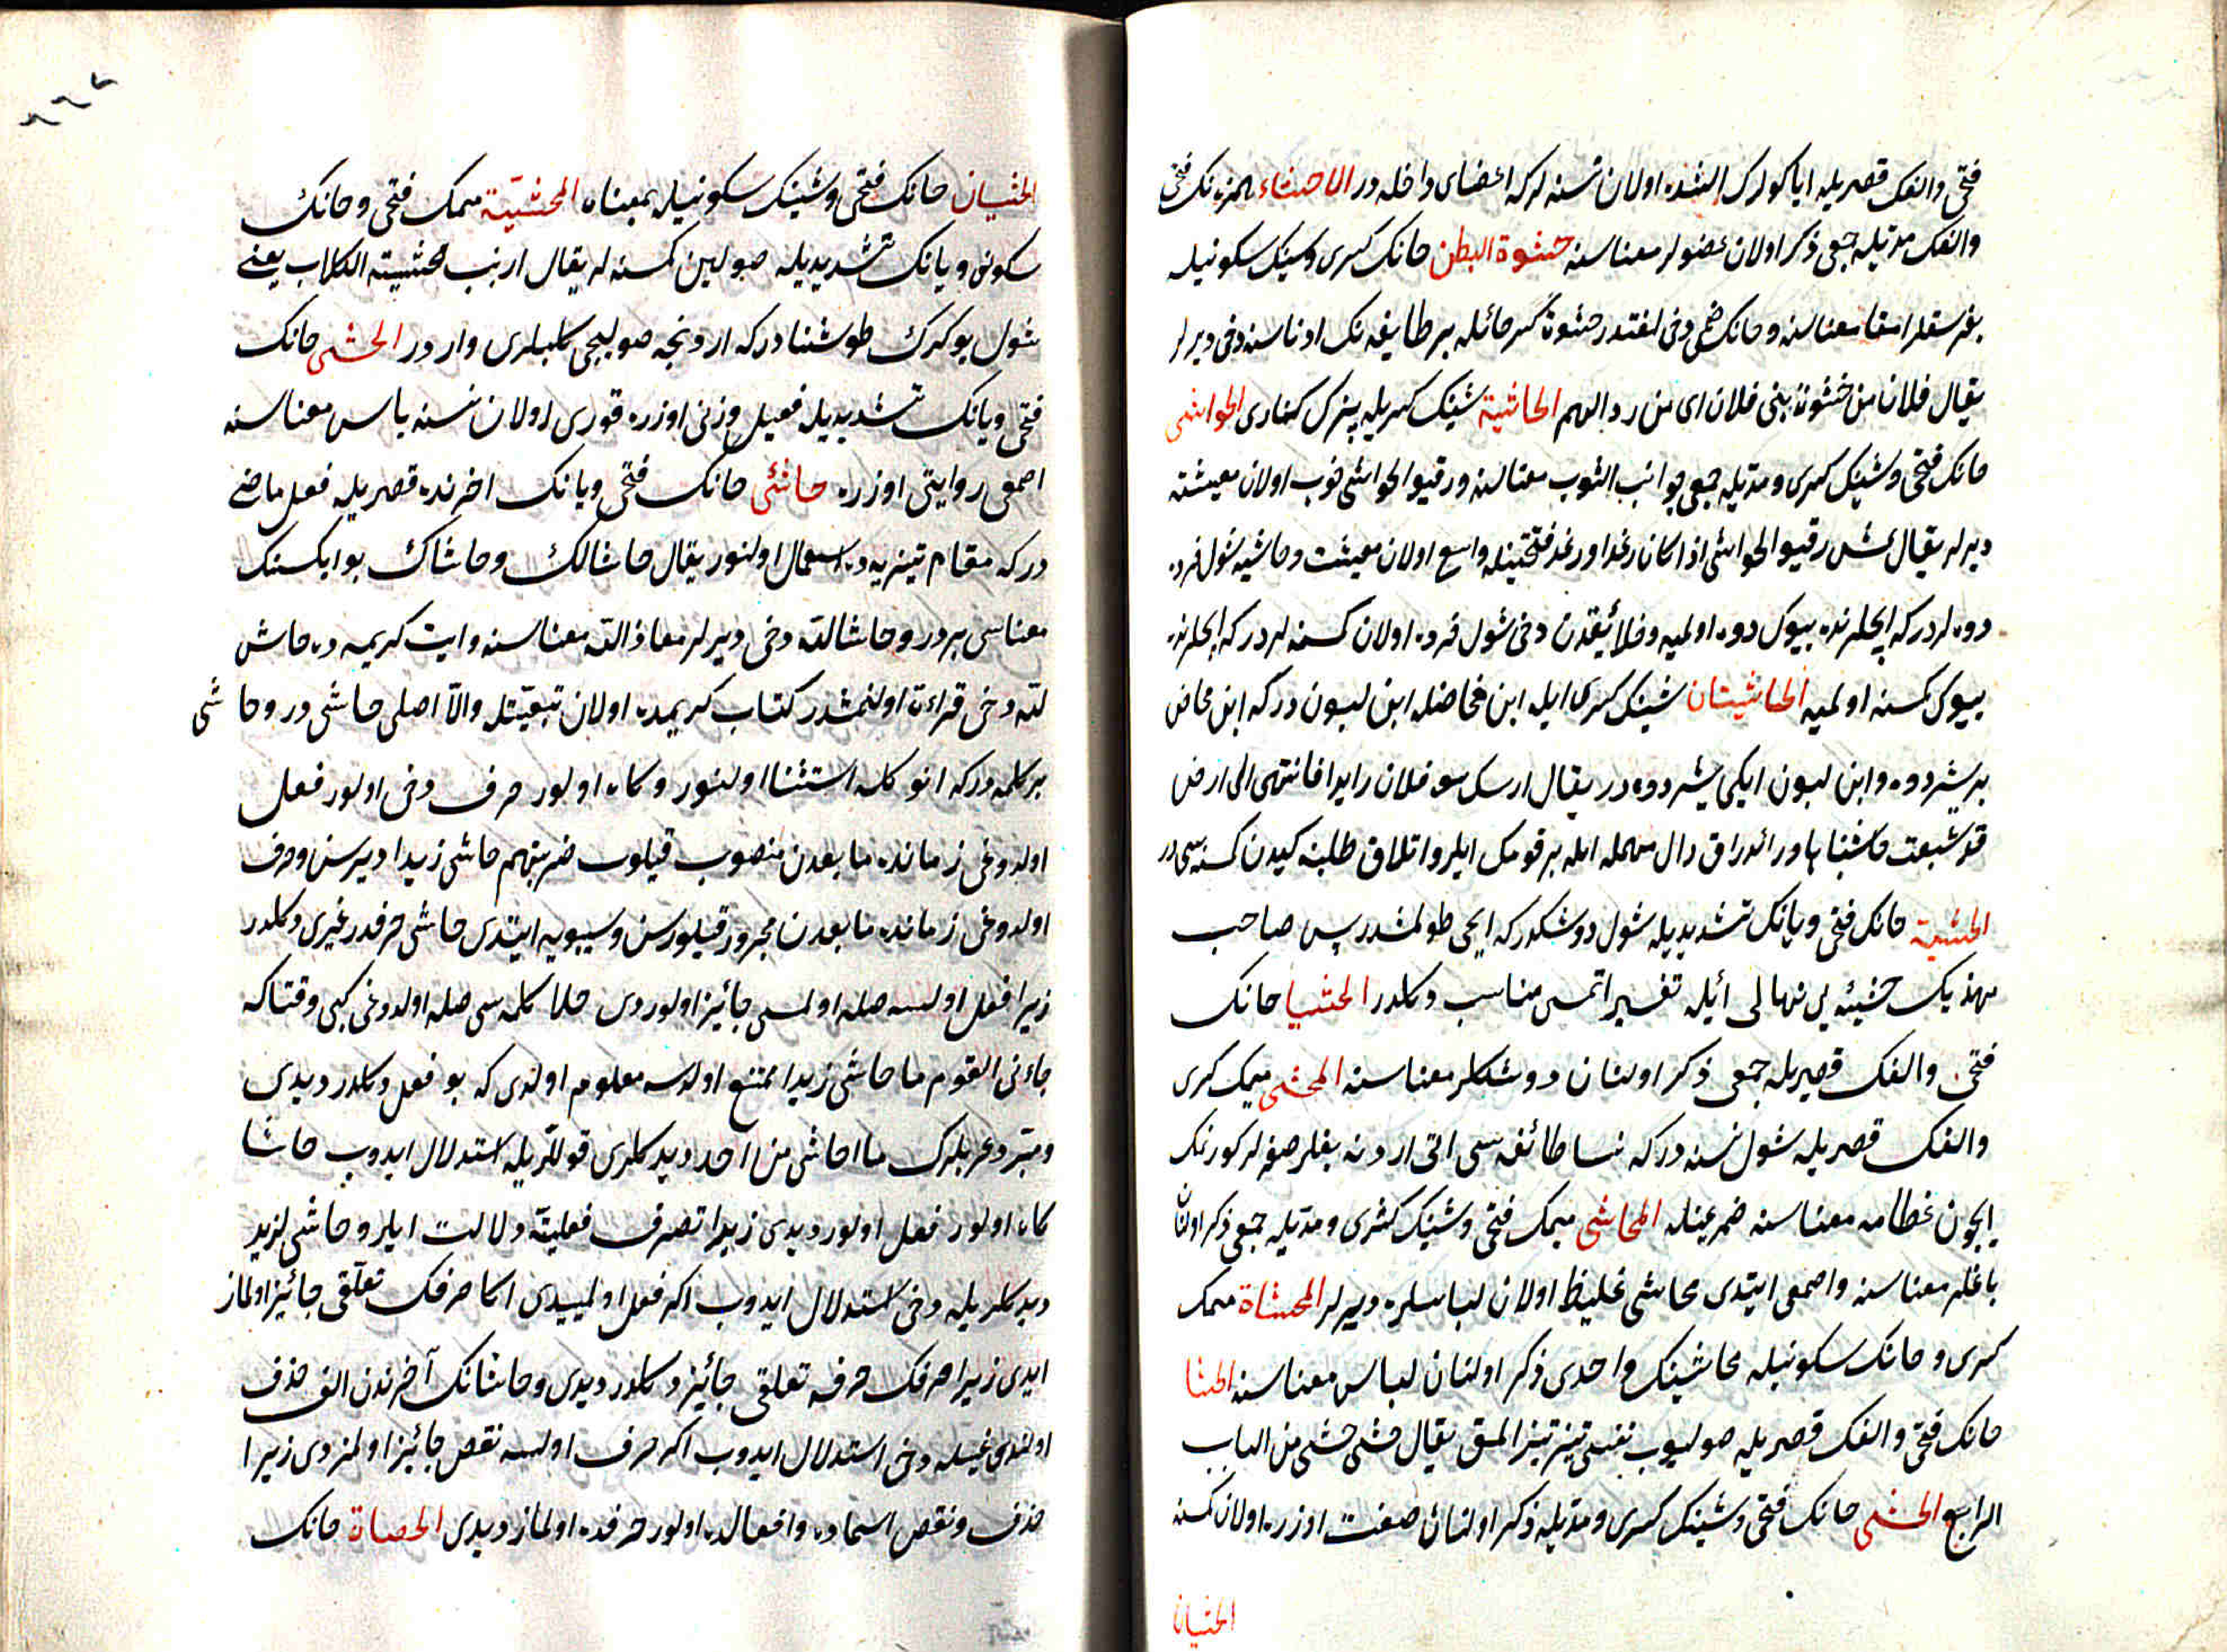 فتحی والفک قصریله ایاکولرک التنده اولان نسنه لرکه اعضای داخله در الاحشاء همزه نک فتحی
والفک مدیله جمعی ذکر اولان عضولر معناسنه حشوة البطن حانک کسری وشینک سکونیله
بغرسقلر امعا معناسنه وحانک ضمی دخی لغتدر حشوة کسر حائله بر طایفه نک ادناسنه دخی دیرلر
یقال فلان من حشوة بنی فلان ای من رذالهم الحاشیة شینک کسریله بزک کناری الحواشی
حانک فتحی وشینک کسری ومدیله جمعی جوانب الثوب معناسنه ورقیق الحواشی خوب اولان معیشته
دیرلر یقال عیش رقیق الحواشی اذا کان رغدا ورغد فتحتینله واسع اولان معیشت وحاشیه شول خرده
دوه لردرکه ایچلرنده بیوک دوه اولمیه وخلائقدن دخی شول خرده اولان کمسنه لردرکه ایچلرنده
بیوک کمسنه اولمیه الحاشیتان شینک کسری ایله ابن مخاضله ابن لبون درکه ابن مخاض
بر یشر دوه وابن لبون ایکی یشر دوه در یقال ارسل بنو فلان رایدا فانتهی الی ارض
قد شبعت حاشیتاها ورائد راق دال مهمله ایله بر قومک ایلرو اتلاق طلبنه کیدن کمسنه سی در
الحشیة حانک فتحی ویانک تشدیدیله شول دوشکدرکه ایچی طولمشدر پس صاحب
مهذبک حشیئه یی نهالی ایله تفسیر اتمسی مناسب دکلدر الحشیا حانک
فتحی والفک قصریله جمعی ذکر اولنان دوشکلر معناسنه المحشی میمک کسری
والفک قصریله شول نسنه درکه نسا طائفه سی التی اردنه بغلر صغرلر کورنمک
ایچون عظامه معناسنه ضم عینله المحاشی میمک فتحی وشینک کسری ومدیله جمعی ذکر اولنان
باغلر معناسنه واصمعی ایتدی محاشی غلیظ اولان لباسلره دیرلر المحشاة میمک
کسری وحانک سکونیله محاشینک واحدی ذکر اولنان لباس معناسنه الحشا
حانک فتحی والفک قصریله صولیوب نفسی تیز تیز المق یقال حشی حشی من الباب
الرابع الحشی حانک فتحی وشینک کسری ومدیله ذکر اولنان صفت اوزره اولان کمسنه
الحشیان
الحشیان حانک فتحی وشینک سکونیله بمعناه المحشیة میمک فتحی وحانک
سکونی ویانک تشدیدیله صولین کمسنه لر یقال ارنب محشیة الکلاب یعنی
شول یوکرک طوشنادرکه اردنجه صولیجی کلبلری واردر الحشی حانک
فتحی ویانک تشدیدیله فعیل وزنی اوزره قوری اولان نسنه یابس معناسنه
اصمعی روایتی اوزره حاشی حانک فتحی ویانک اخرنده قصریله فعل ماضی
درکه مقام تنزیهده استعمال اولنور یقال حاشالک وحاشاک بو ایکسنک
معناسی بردر وحاشالله دخی دیرلر معاذ الله معناسنه وایت کریمه ده حاش
لله دخی قراءة اولنمشدر کتاب کریمده اولان تبعیتله والا اصلی حاشی در وحاشی
بر کلمه درکه انوکله استثنا اولنور وکاه اولور حرف دخی اولور فعل
اولدوغی زمانده مابعدن منصوب قیلوب ضربتهم حاشی زیدا دیرسن وحرف
اولدوغی زمانده مابعدن مجرور قیلورسن وسیبویه ایتدی حاشی حرفدر غیری دکلدر
زیرا فعل اولسه صله اولمسی جائیز اولوردی خلا کلمه سی صله اولدوغی کبی وقتاکه
جاءنی القوم ما حاشی زیدا ممتنع اولدسه معلوم اولندی که بو فعل دکلدر دیدی
ومبرد عربلرک ما احاشی من احد دیدکلری قوللریله استدلال ایدوب حاشا
کاه اولور فعل اولور دیدی زیرا تصرف فعلیته دلالت ایلر وحاشی لزید
دیدکلریله دخی استدلال ایدوب اکر فعل اولمیدی اکا حرفک تعلقی جائیز اولماز
ایدی زیرا حرفک حرفه تعلقی جائیز دکلدر دیدی وحاشانک آخرندن الف حذف
اولندوغیله دخی استدلال ایدوب اکر حرف اولسه نقص جائیز اولمزدی زیرا
حذف ونقص اسماده وافعالده اولور حرفده اولماز دیدی الحصاة حانک